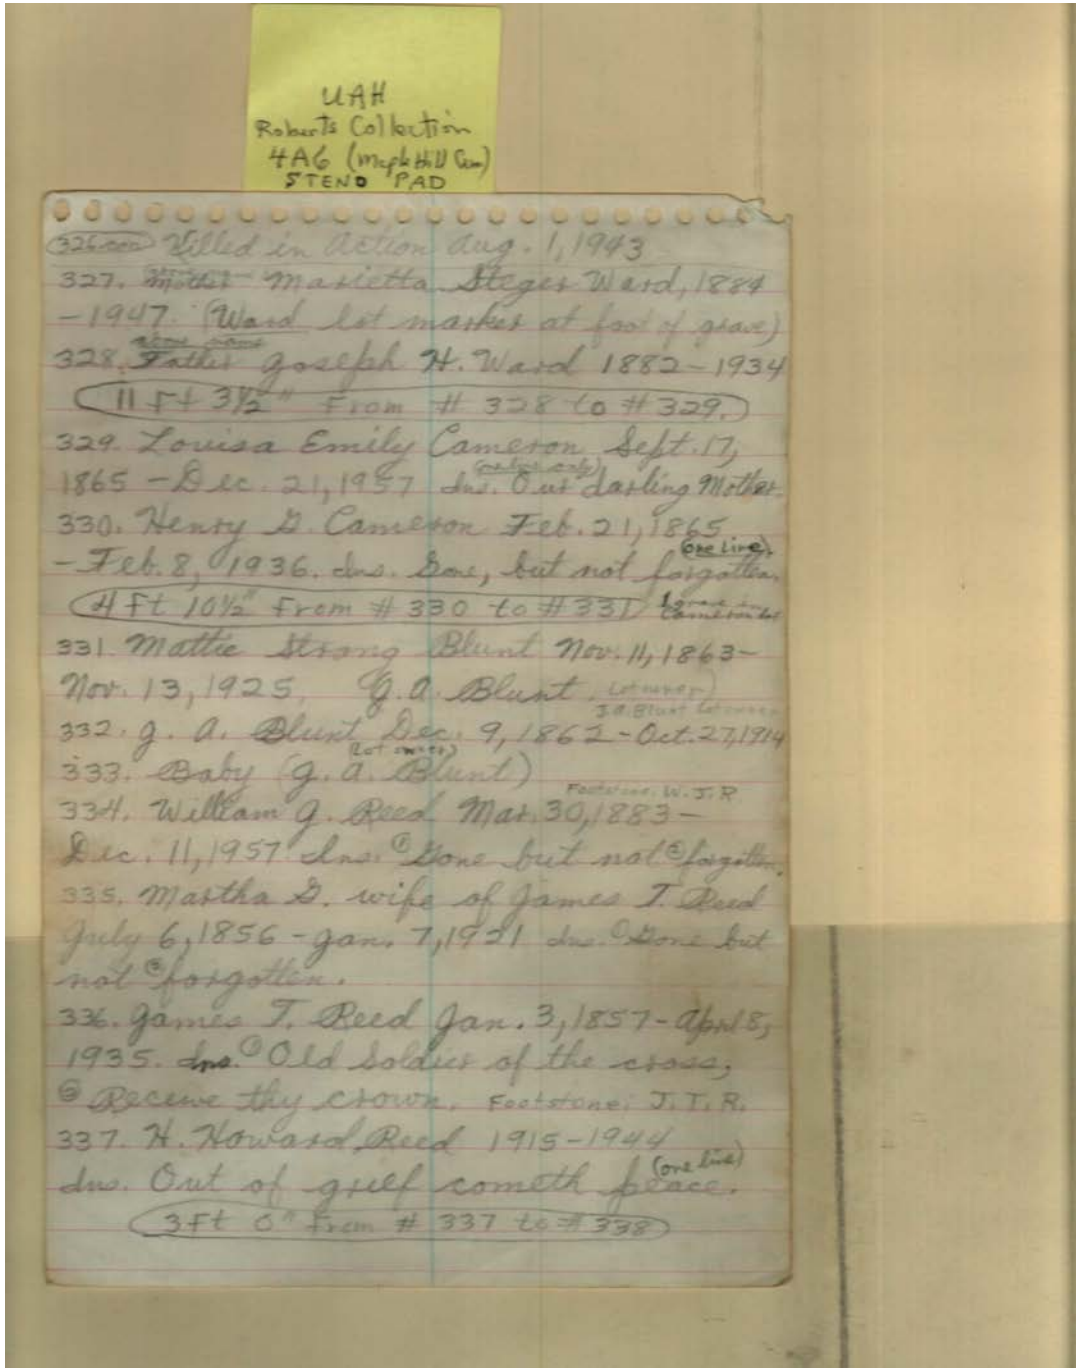 UAH
Roberts Collection
4A6 (Maple Hill Cem)
STENO PAD
326. Killed in Action Aug. 1, 1943
327. Mother Marietta Steger Ward, 1884
-1947. (Ward lot marker at foot of grave)
above name
328. Father Joseph H. Ward 1882-1934
11 ft 3½" From # 328 to # 329.
329. Louisa Emily Cameron Sept. 17,
(one line only)
1865 - Dec. 21, 1957 Ins. Our darling Mother.
330. Henry G. Cameron Feb. 21, 1865
(one line).
- Feb. 8, 1936. Ins. Gone, but not forgotten.
4 ft 10½" From # 330 to # 331 Cameron lot
331. Mattie Strong Blunt Nov. 11, 1863-
Nov. 13, 1925, J.A. Blunt. (Lot owner)
J.A. Blunt Lot owner
332. J. A. Blunt Dec. 9, 1862 - Oct. 27, 1914
(Lot owner)
333. Baby (J. A. Blunt)
Footstone: W.J.R.
334. William J. Reed Mar. 30, 1883-
Dec. 11, 1957 Ins. ① Gone but not ② forgotten.
335. Martha G. wife of James T. Reed
July 6, 1856 - Jan. 7, 1921 Ins. ① Gone but
not ② forgotten.
336. James T. Reed Jan. 3, 1857 - April 8,
1935. Ins. ① Old Soldier of the cross,
② Receive thy crown. Footstone: J.T.R.
337. H. Howard Reed 1915-1944
(one line)
Ins. Out of grief cometh peace.
3 ft 0" From # 337 to # 338